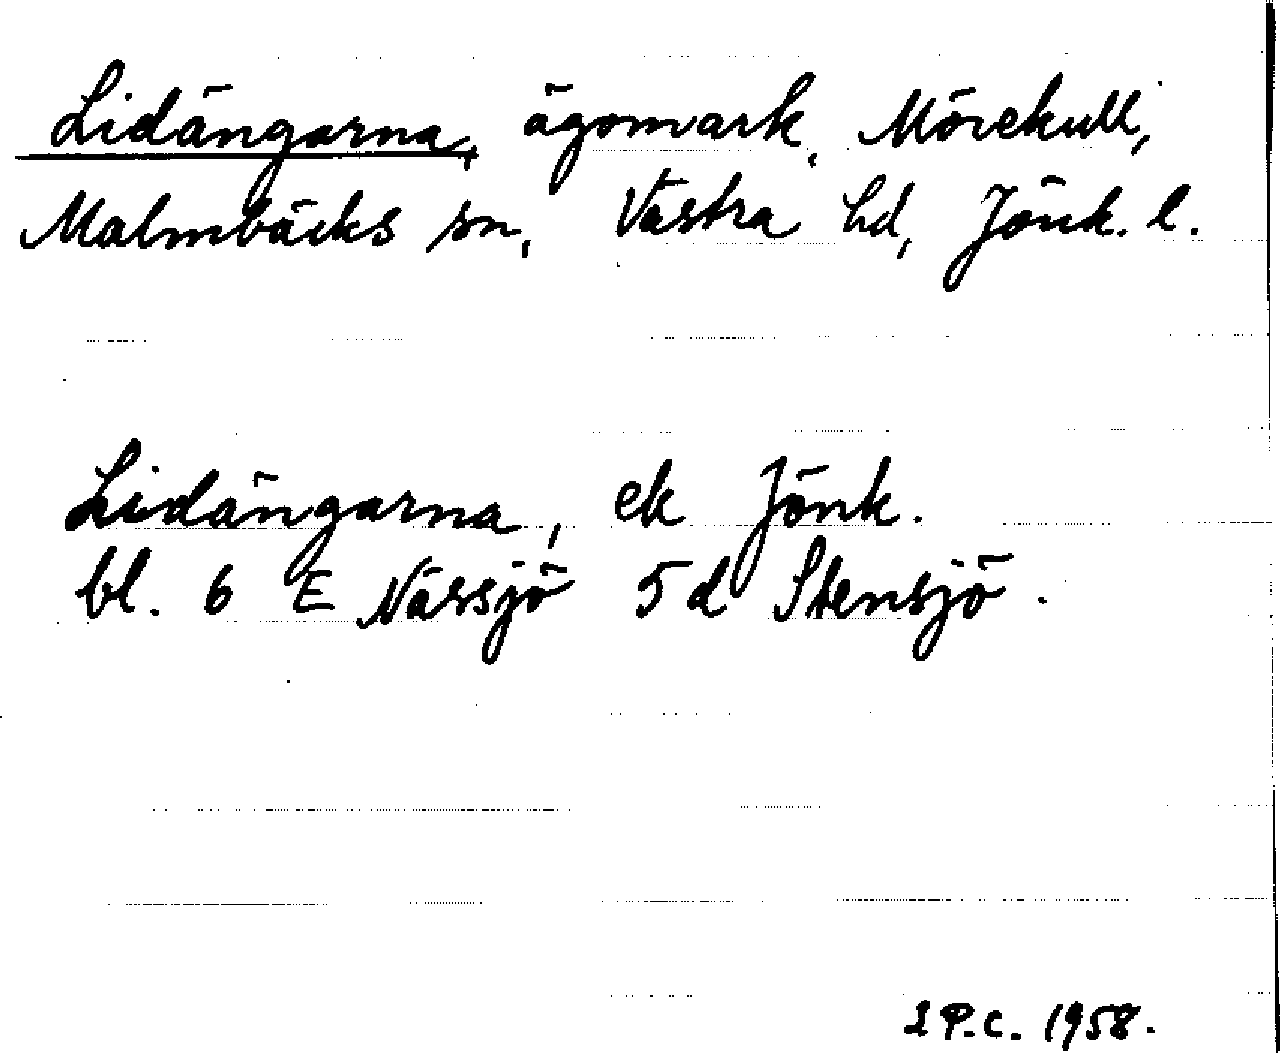 Lidängarna, ägomark, Mörekull,
Malmbäcks sn, Västra hd, Jönk. l.
Lidängarna, ek Jönk.
bl. 6 E Nässjö 5d Stensjö.
I P.C. 1958.